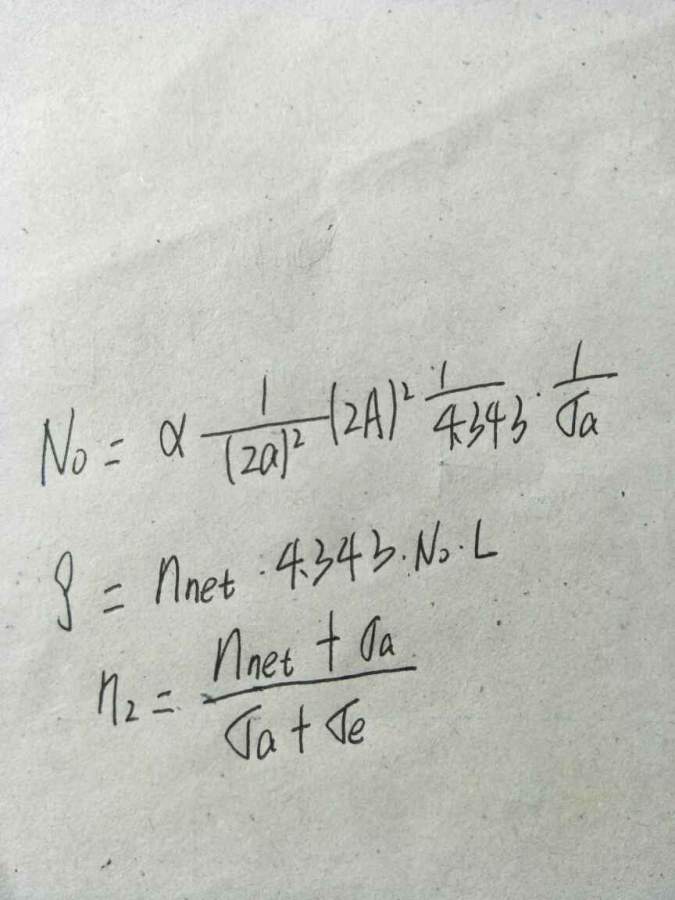 N₀ = α 1/(2a)² (2A)² 1/4.343 · 1/σa
g = nnet · 4.343 · N₀ · L
n₂ = (nnet + σa)/(σa + σe)